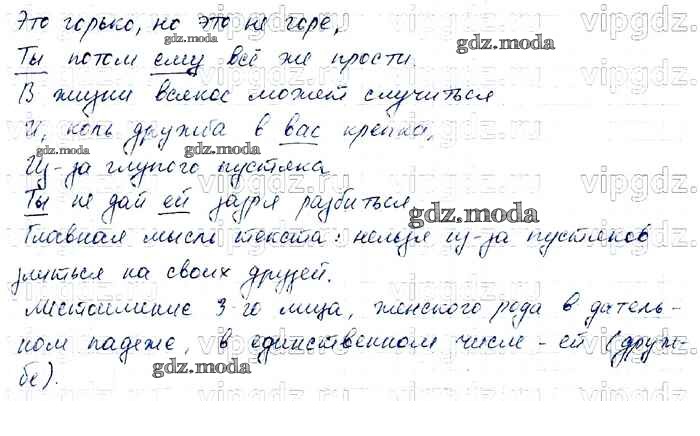 Это горько, но это не горе,
Ты потом ему всё же прости.
В жизни всякое может случиться
И, коль дружба в вас крепка,
Из-за глупого пустяка
Ты не дай ей зазря разбиться.
Главная мысль текста: нельзя из-за пустяков
злиться на своих друзей.
Местоимение 3-го лица, женского рода в датель-
ном падеже, в единственном числе - ей (друж-
бе).
gdz.moda
vipgdz.ru